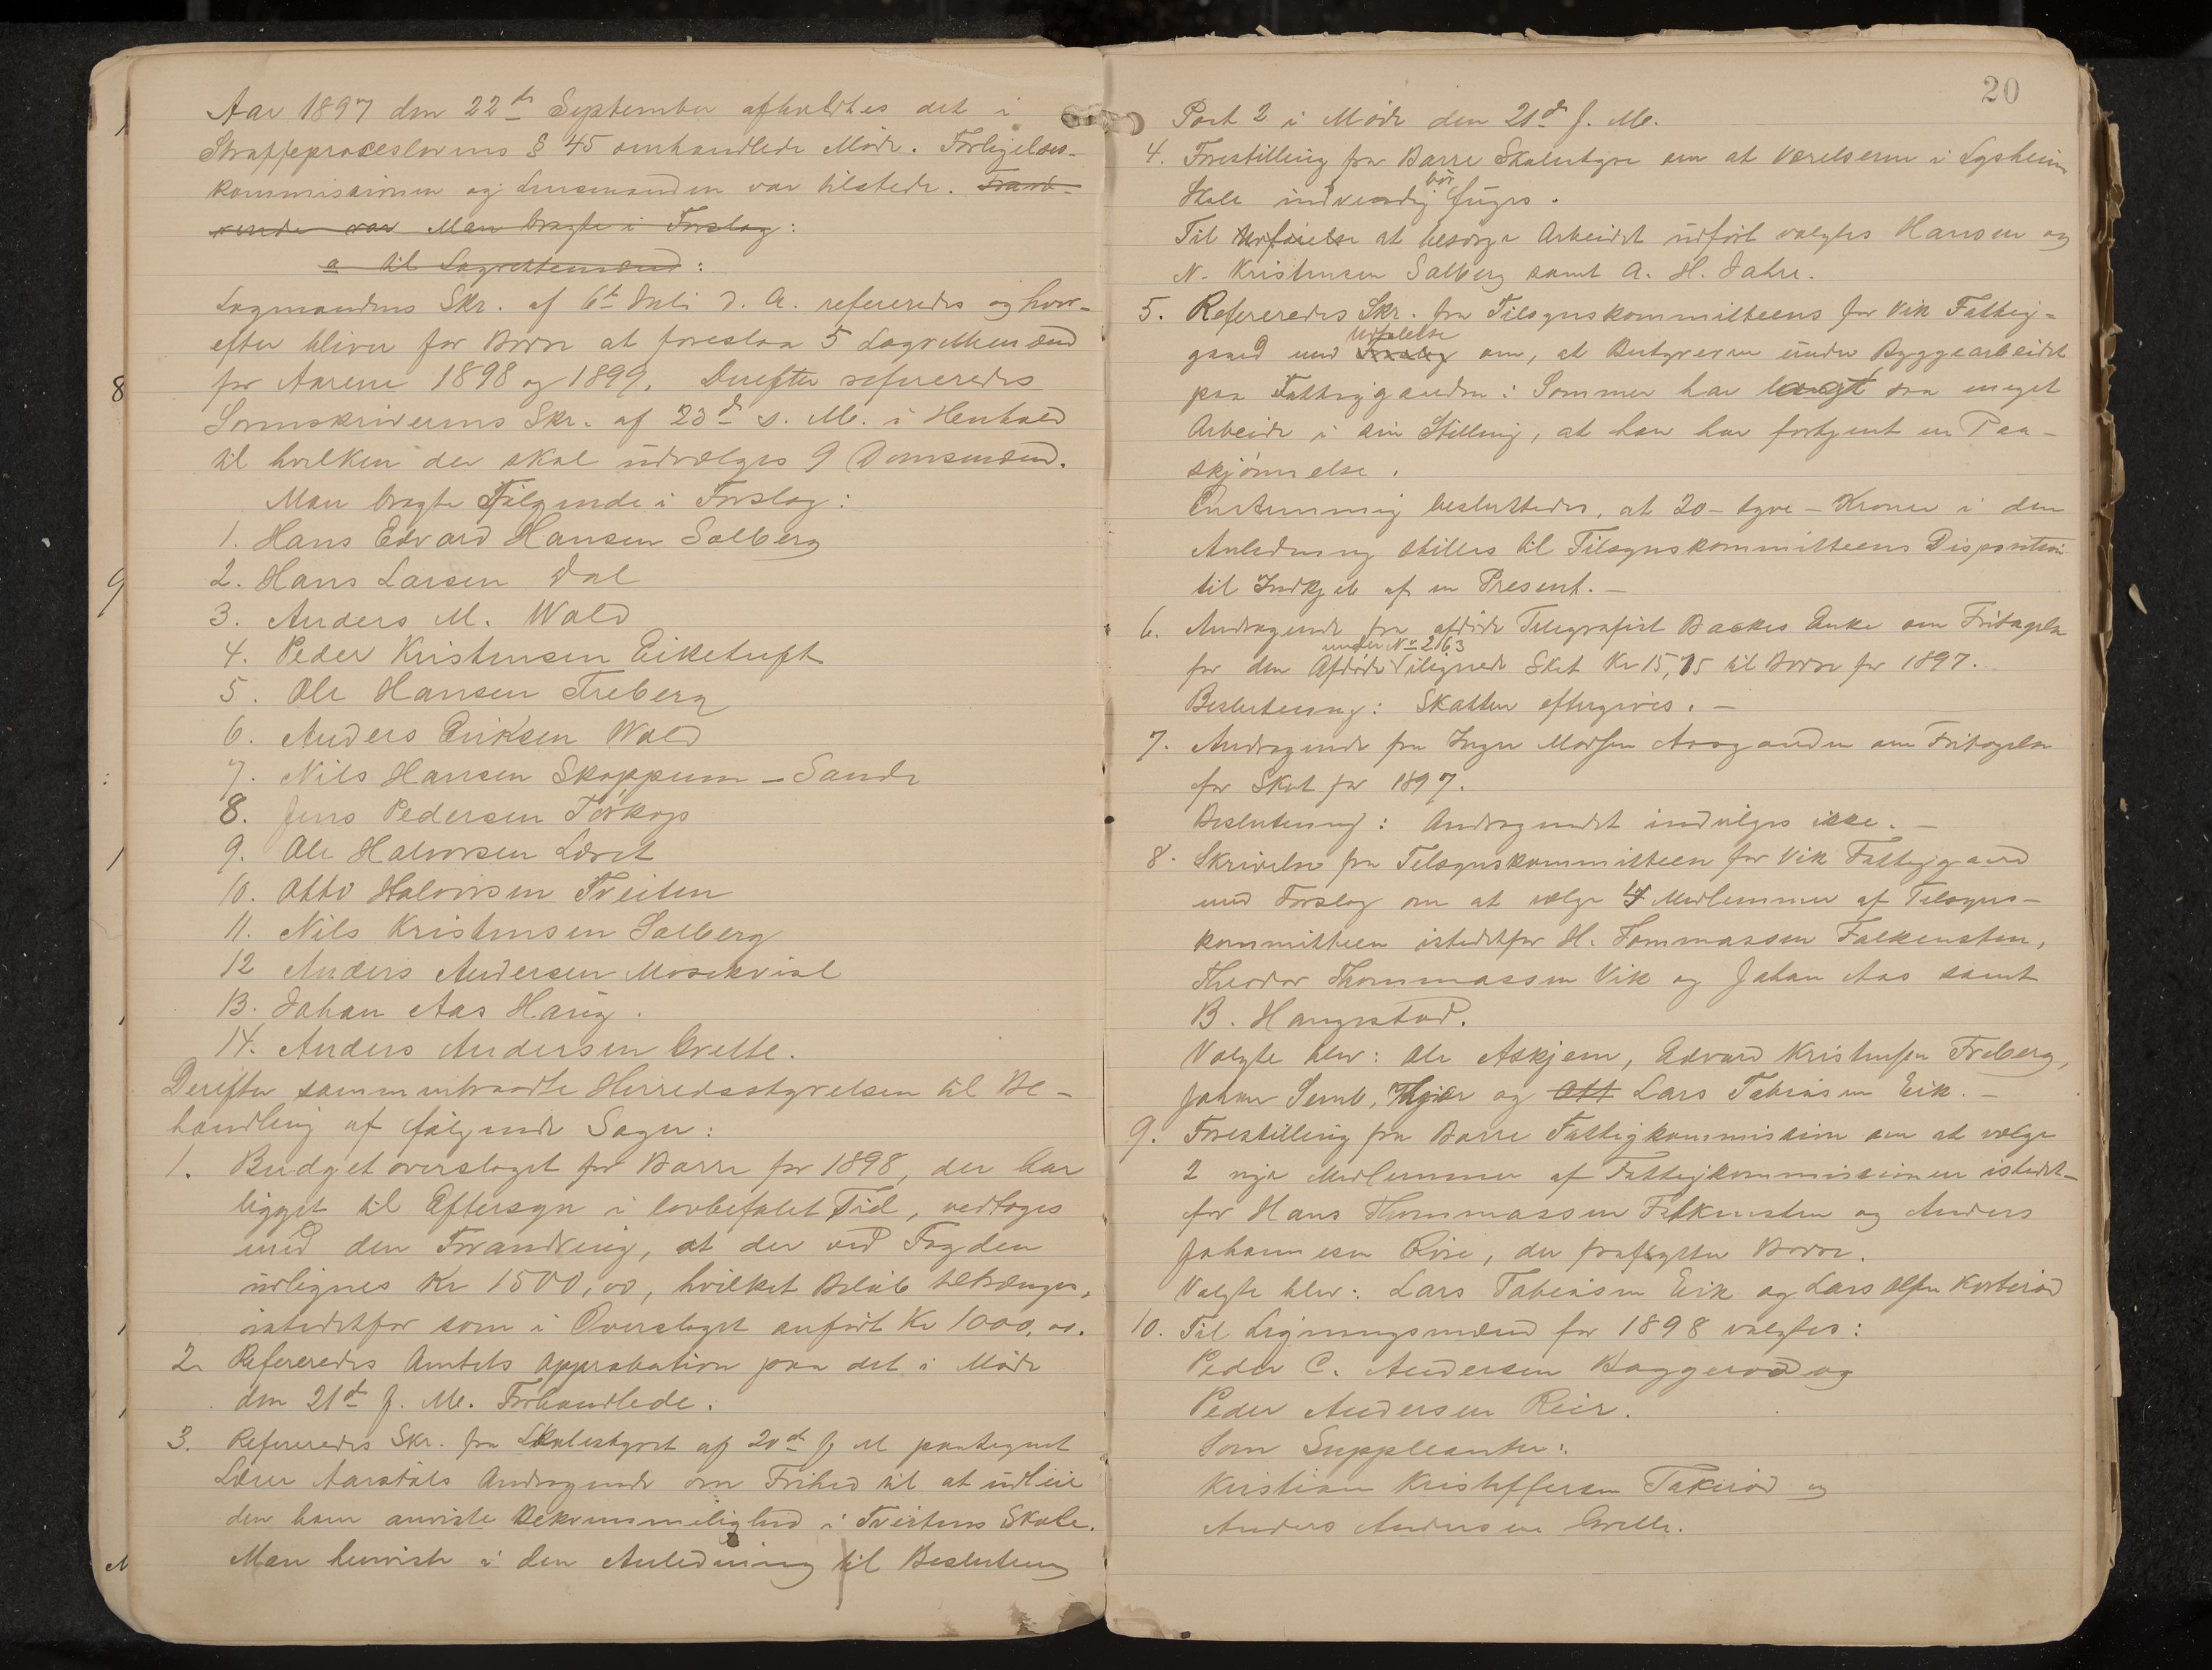 Aar 1897 den 22de September afholdtes det i
Straffeproceslovens § 45 omhandlede Møde. Forligelses-
kommissionen og Lensmanden var tilstede.
var Man bragte i Forslag:
a til Lagrettemænd:
Lagmandens Skr. af 6te Juli d. A. refereredes og hvor-
efter bliver for Borre at foreslaa 5 Lagrettemænd
for Aarene 1898 og 1899. Derefter refereredes
Sorenskriverens Skr. af 23d s. M. i Henhold
til hvilken der skal udvælges 9 Domsmænd.
Man bragte Følgende i Forslag:
1. Hans Edvard Hansen Solberg
2. Hans Larsen Dal
3. Anders M. Wold
4. Peder Kristensen Eiketuft
5. Ole Hansen Freberg
6. Anders Eriksen Wold
7. Nils Hansen Skoppum – Sande
8. Jens Pedersen Tørkop
9. Ole Halvorsen Løret
10. Otto Halvorsen Tveiten
11. Nils Kristensen Solberg
12 Anders Andersen Mosekvist
13. Johan Aas Haug.
14. Anders Andersen Grette.
Derefter sammentraadte Herredsstyrelsen til Be-
handling af følgende Sager:
1. Budgetoverslaget for Borre for 1898, der har
ligget til Eftersyn i lovbefalet Tid, vedtoges
med den Forandring, at der ved Fogden
udlignes Kr 1500,00, hvilket Beløb tiltrænges,
istedetfor som i Overslaget anført Kr 1000,00.
2. Refereredes Amtets Approbation paa det i Møde
den 21de f. M. Forhandlede.
3. Refereredes Skr. fra Skolestyret af 20de f M paategnet
Lærer Aarstals Andragende om Frihed til at udleie
den ham anviste Bekvemmelighed i Tveitens Skole.
Man henviste i den Anledning til Beslutning
20
Post 2 i Møde den 21de f. M.
4. Forestilling fra Borre Skolestyre om at Værelserne i Lysheim
Skole indvendig bør fuges.
Til at besørge Arbeidet udført valgtes Hansen og
N. Kristensen Solberg samt A. H. Jahre.
5. Refereredes Skr. fra Tilsynskommitteens for Vik Fattig-
gaard med Forslag Udtalelse om, at Bestyreren under Byggearbeidet
paa Fattiggaarden i Sommer har lagt saa meget
Arbeide i sin Stilling, at han har fortjent en Paa-
skjønnelse.
Enstemmig besluttedes, at 20 – tyve – Kroner i den
Anledning stilles til Tilsynskommitteens Disposition
til Indkjøb af en Present. –
6. Andragende fra afdøde Telegrafist Backes Enke om Fritagelse
for den Afdøde under No 263 ilignede Skat Kr 15,75 til Borre for 1897.
Beslutning: Skatten eftergives. –
7. Andragende fra Inger Madsen Aasgaarden om Fritagelse
for Skat for 1897.
Beslutning: Andragendet indvilges ikke. –
8. Skrivelse fra Tilsynskommitteen for Vik Fattiggaard
med Forslag om at vælge 4 Medlemmer af Tilsyns-
kommitteen istedetfor H. Tommassen Falkensten,
Theodor Thommassen Vik og Johan Aas samt
B. Haugestad.
Valgte blev: Ole Askjem, Edvard Kristensen Freberg,
Johan Semb, og Ott Lars Tobiassen Eik. –
9. Forestilling fra Borre Fattigkommission om at vælge
2 nye Medlemmer af Fattigkommissionen istedet-
for Hans Thommassen Falkensten og Anders
Johannesen Røre, der frafløtter Borre.
Valgte blev: Lars Tobiassen Eik og Lars Olsen Korterød
10. Til Ligningsmænd for 1898 valgtes:
Peder C. Andersen Baggerød og
Peder Andersen Reir.
Som Suppleanter:
Kristian Kristoffersen Takerød og
Anders Andersen Grette.